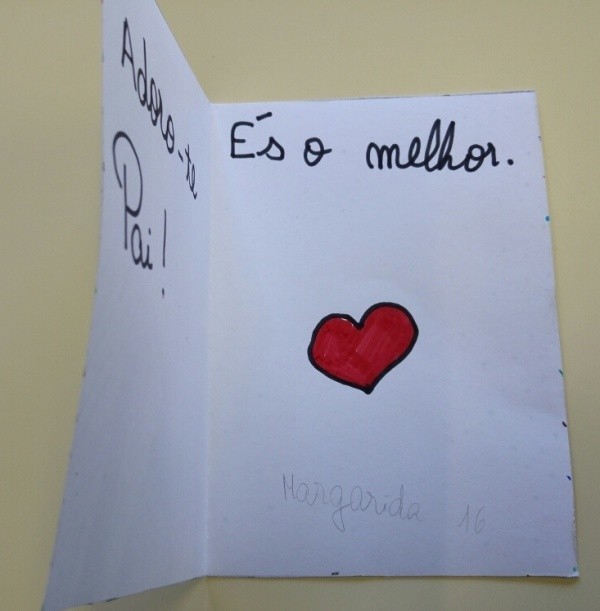 Adoro-te
Pai!
És o melhor.
Margarida 16